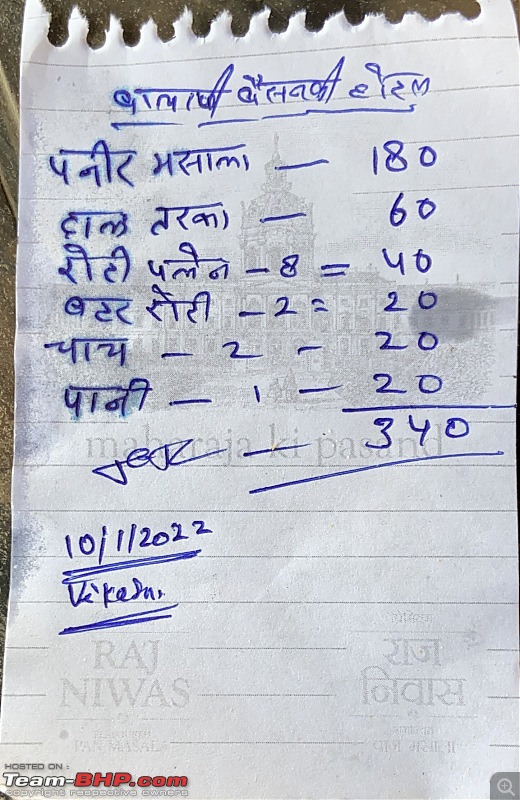 बालाजी वैसनवी होटल
पनीर मसाला — 180
दाल तरका — 60
रोटी पलेन - 8 = 40
बटर रोटी - 2 = 20
चाय - 2 - 20
पानी - 1 - 20
340
maharaja ki pasand
10/1/2022
Vikash.
RAJ राज
NIWAS निवास
PAN MASALA पान मसाला
HOSTED ON :
Team-BHP.com
copyright respective owners